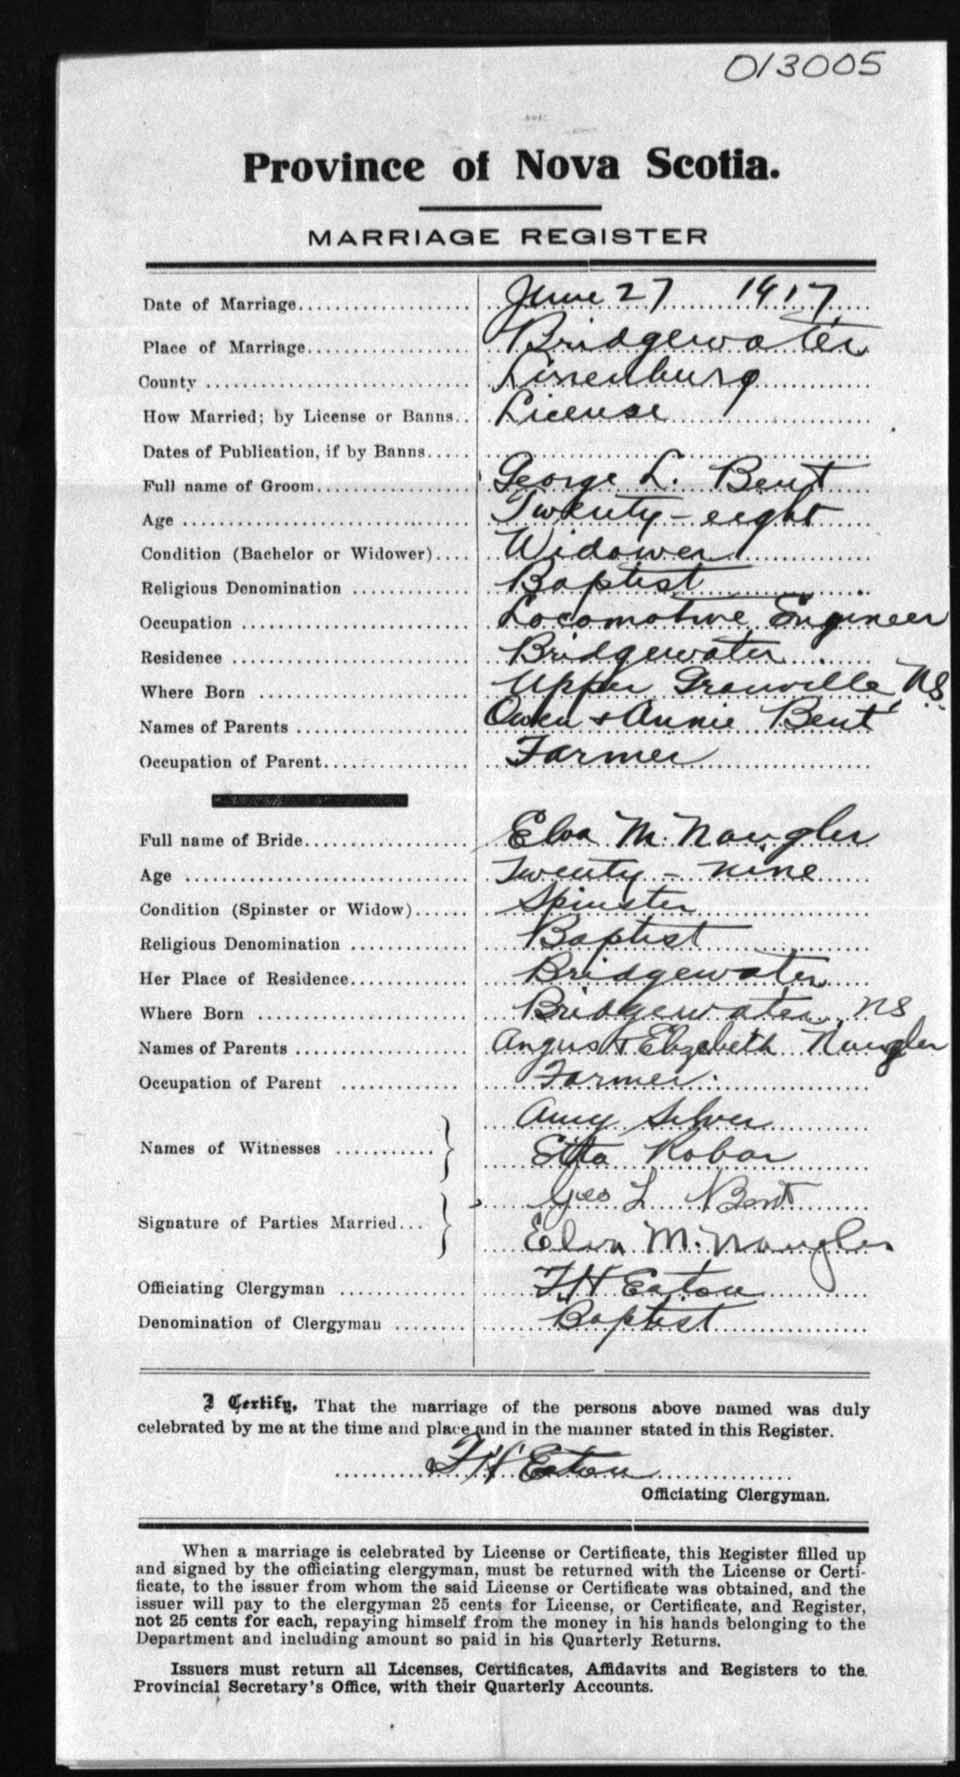 013005
Province of Nova Scotia.
MARRIAGE REGISTER
Date of Marriage................... June 27 1917
Place of Marriage.................. Bridgewater
County ............................. Linenburg
How Married; by License or Banns.. License
Dates of Publication, if by Banns.....
Full name of Groom................. George L. Bent
Age ................................ Twenty-eight
Condition (Bachelor or Widower).... Widower
Religious Denomination ............. Baptist
Occupation ......................... Locomotive Engineer
Residence .......................... Bridgewater
Where Born ......................... Upper Granville NS
Names of Parents ................... Owen & Annie Bent
Occupation of Parent................ Farmer
Full name of Bride.................. Elva M. Naugler
Age ................................ Twenty-nine
Condition (Spinster or Widow)...... Spinster
Religious Denomination ............. Baptist
Her Place of Residence.............. Bridgewater
Where Born ......................... Bridgewater NS
Names of Parents ................... Angus & Elizabeth Naugler
Occupation of Parent ............... Farmer
Amy Silver
Names of Witnesses ...........
Etta Robar
Geo L Bent
Signature of Parties Married...
Elva M. Naugler
Officiating Clergyman .............. F H Eaton
Denomination of Clergyman ........ Baptist
I Certify, That the marriage of the persons above named was duly
celebrated by me at the time and place and in the manner stated in this Register.
F H Eaton
Officiating Clergyman.
When a marriage is celebrated by License or Certificate, this Register filled up
and signed by the officiating clergyman, must be returned with the License or Certi-
ficate, to the issuer from whom the said License or Certificate was obtained, and the
issuer will pay to the clergyman 25 cents for License, or Certificate, and Register,
not 25 cents for each, repaying himself from the money in his hands belonging to the
Department and including amount so paid in his Quarterly Returns.
Issuers must return all Licenses, Certificates, Affidavits and Registers to the
Provincial Secretary's Office, with their Quarterly Accounts.